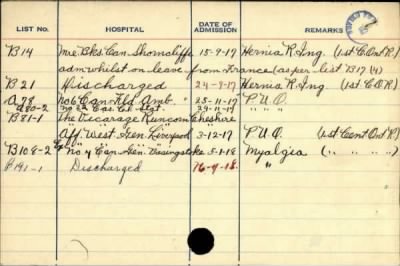 LIST No. HOSPITAL DATE OF ADMISSION REMARKS
B14 Bks Can. Shorncliffe 15-9-17 Hernia R. Ing. (1st C Ont R)
adm whilst on leave from France (as per list B17 (4)
B21 Discharged 24-9-17 Hernia R. Ing. (1st C.O.R)
A78 No 6 Can Fld. Amb. " 25-11-17 "P.U.O.
No Can C.C. Stat. 29-11-17 "
B81-1 The Vicarage Runcorn Cheshire
Aff. West. Gen. Liverpool 3-12-17 P.U.O. (1st Cent Ont R)
B108-2 No 4 Can Gen. Basingstoke 5-1-18 Myalgia ( " " " )
B141-1 Discharged "